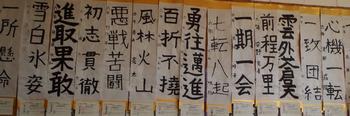 心機一転
一致団結
雲外蒼天
前程万里
一期一会
七転八起
勇往邁進
百折不撓
風林火山
悪戦苦闘
初志貫徹
進取果敢
雪白氷姿
一所懸命